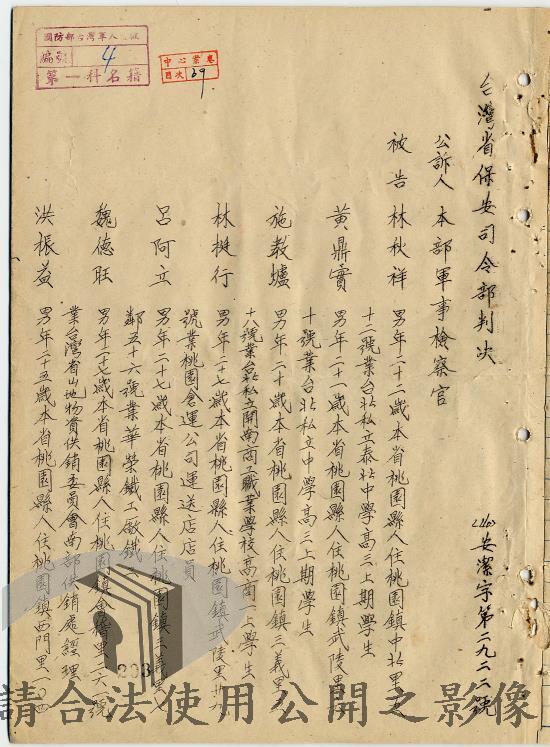 台灣省保安司令部判決
安潔字第二九二二號
公訴人 本部軍事檢察官
被告 林秋祥 男年二十二歲本省桃園縣人住桃園鎮中北里
十二號業台北私立泰北中學高三上期學生
黃鼎實 男年二十一歲本省桃園縣人住桃園鎮武陵里
十號業台北私立中學高三上期學生
施教爐 男年二十歲本省桃園縣人住桃園鎮三義里
十八號業台北私立開南商工職業學校高商一上學生
林挺行 男年二十七歲本省桃園縣人住桃園鎮武陵里廿九
號業桃園倉運公司運送店店員
呂阿立 男年二十七歲本省桃園縣人住桃園鎮三義里
鄰五十六號業華榮鐵工廠鐵工
魏德旺 男年二十七歲本省桃園縣人住桃園鎮會稽里二六一號
業台灣省山地物資供銷委員會南部供銷處經理
洪振益 男年二十五歲本省桃園縣人住桃園鎮西門里一〇四
國防部台灣軍人
編號 4
第一科名籍
中心業卷
目次 29
203
請合法使用公開之影像